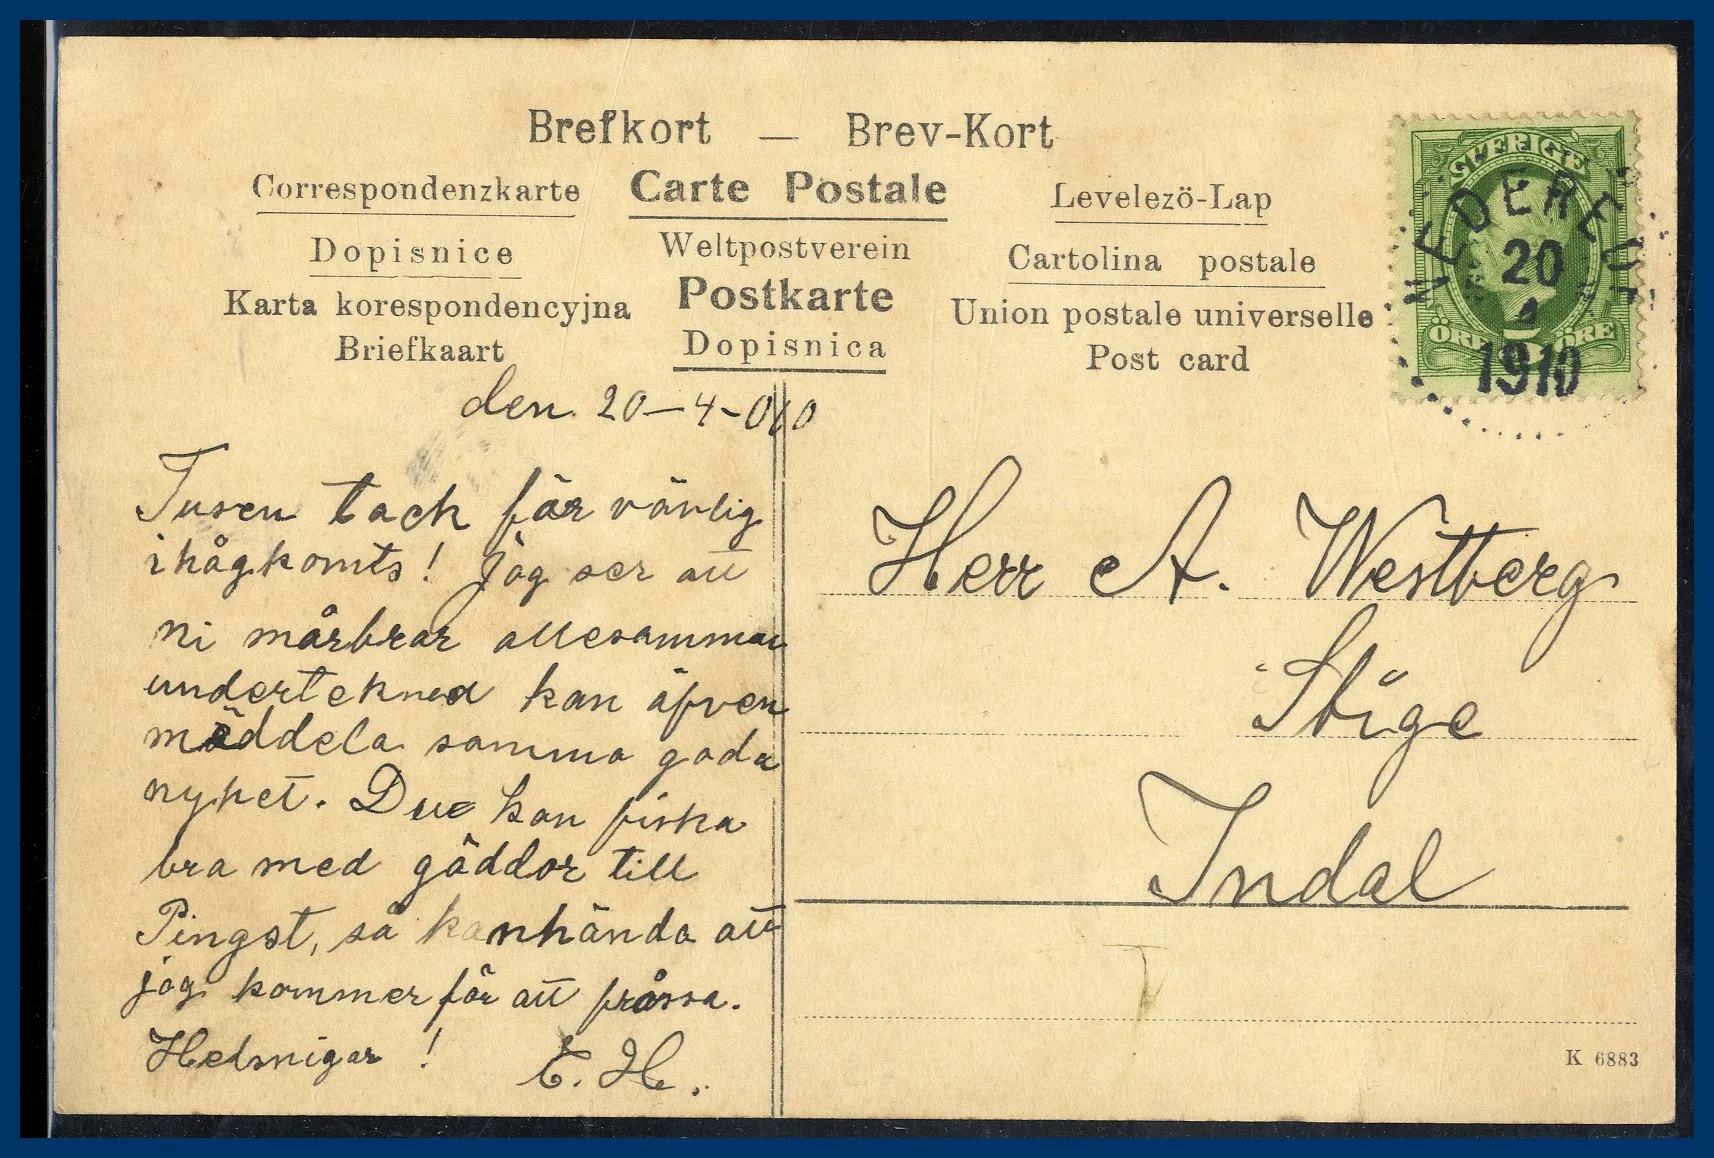 Brefkort — Brev-Kort
Correspondenzkarte Carte Postale Levelezö-Lap
Dopisnice Weltpostverein Cartolina postale
Karta korespondencyjna Postkarte Union postale universelle
Briefkaart Dopisnica Post card
SVERIGE
ÖRE 5 ÖRE
NEDERE
20
4
1910
den 20-4-010
Tusen tack för vänlig
ihågkomts! Jag ser att
ni mårbrar allesamman
undertekned kan äfven
mäddela samma goda
nyhet. Due kan fiska
bra med gäddor till
Pingst, så kanhända att
jag kommer för att fråssa.
Helsnigar!
E. H.
Herr A. Westberg
Stige
Indal
K 6883